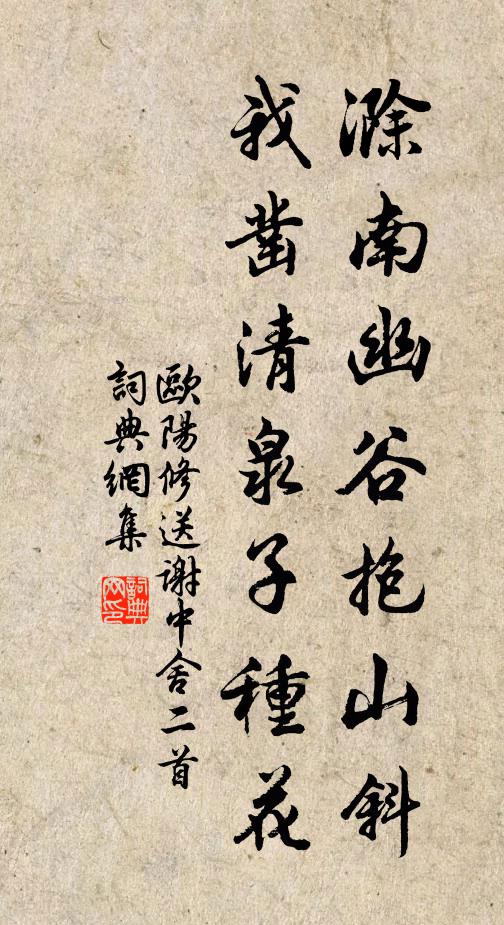 滁南幽谷抱山斜
我凿清泉子種花
歐陽修送謝中舍二首
詞典網集
詞典網印